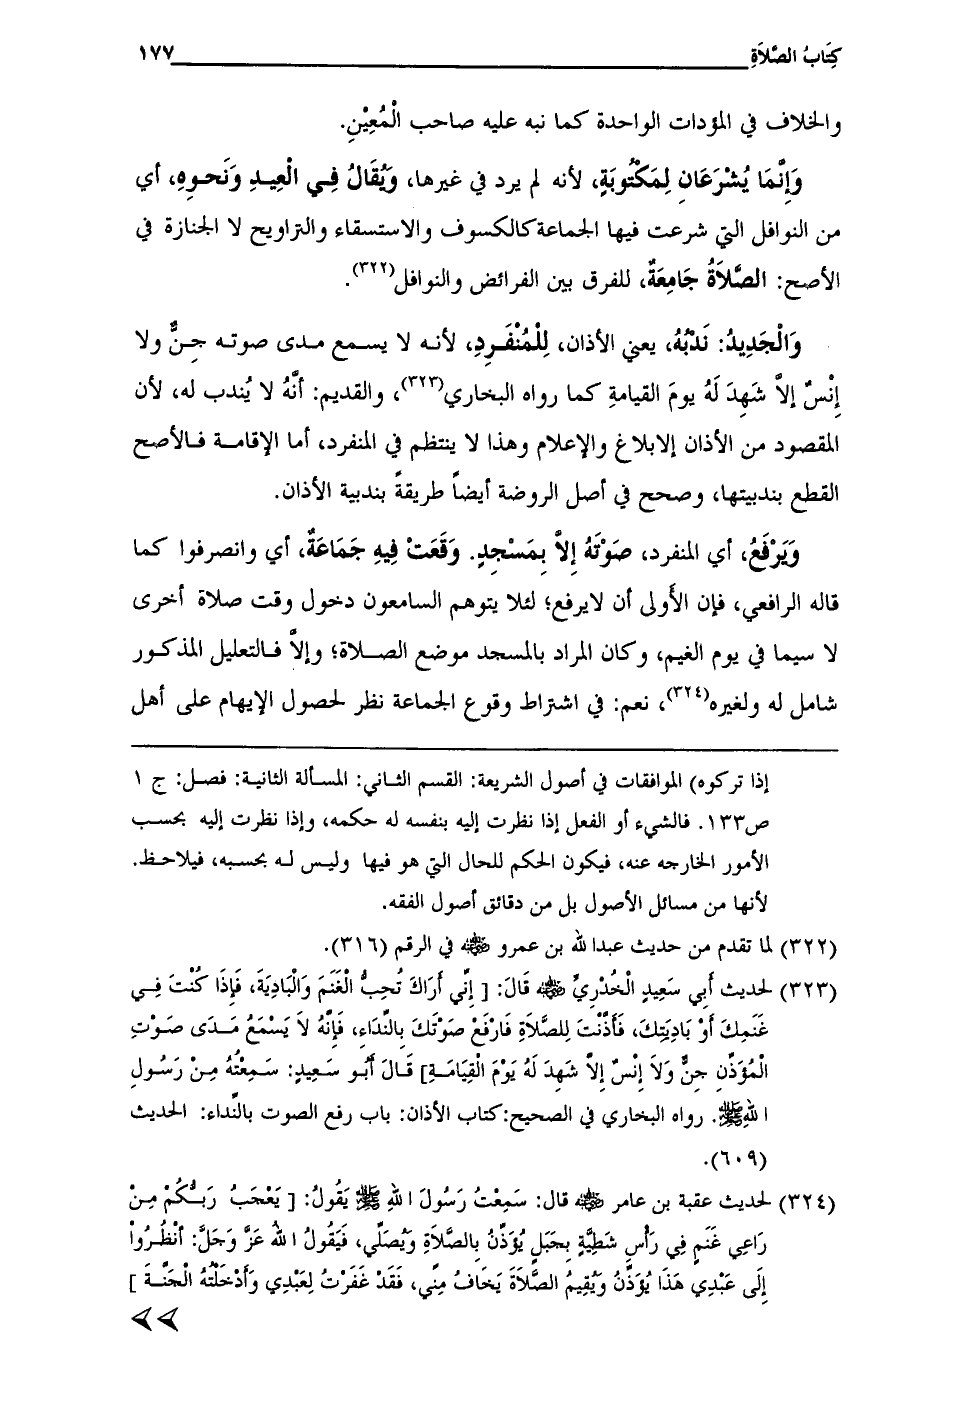 كِتَابُ الصَّلاَةِ ١٧٧
والخلاف في المؤدات الواحدة كما نبه عليه صاحب الْمُعِيْنِ.
وَإِنَّمَا يُشْرَعَانِ لِمَكْتُوبَةٍ، لأنه لم يرد في غيرها، وَيُقَالُ فِي الْعِيدِ وَنَحوِهِ، أي
من النوافل التي شرعت فيها الجماعة كالكسوف والاستسقاء والتراويح لا الجنازة في
الأصح: الصَّلاَةُ جَامِعَةٌ، للفرق بين الفرائض والنوافل(٣٢٢).
وَالْجَدِيدُ: نَدْبُهُ، يعني الأذان، لِلْمُنْفَرِدِ، لأنه لا يسمع مدى صوته جنٌّ ولا
إِنْسٌ إلاَّ شَهِدَ لَهُ يومَ القيامةِ كما رواه البخاري(٣٢٣)، والقديم: أنَّهُ لا يُندب له، لأن
المقصود من الأذان الابلاغ والإعلام وهذا لا ينتظم في المنفرد، أما الإقامة فالأصح
القطع بندبيتها، وصحح في أصل الروضة أيضاً طريقةً بندبية الأذان.
وَيَرْفَعُ، أي المنفرد، صَوْتَهُ إِلاَّ بِمَسْجِدٍ. وَقَعَتْ فِيهِ جَمَاعَةٌ، أي وانصرفوا كما
قاله الرافعي، فإن الأَولى أن لايرفع؛ لئلا يتوهم السامعون دخول وقت صلاة أخرى
لا سيما في يوم الغيم، وكان المراد بالمسجد موضع الصلاة؛ وإلاَّ فالتعليل المذكور
شامل له ولغيره(٣٢٤)، نعم: في اشتراط وقوع الجماعة نظر لحصول الإيهام على أهل
إذا تركوه) الموافقات في أصول الشريعة: القسم الثاني: المسألة الثانية: فصل: ج ١
ص١٣٣. فالشيء أو الفعل إذا نظرت إليه بنفسه له حكمه، وإذا نظرت إليه بحسب
الأمور الخارجه عنه، فيكون الحكم للحال التي هو فيها وليس له بحسبه، فيلاحظ.
لأنها من مسائل الأصول بل من دقائق أصول الفقه.
(٣٢٢) لما تقدم من حديث عبدا لله بن عمرو ﷺ في الرقم (٣١٦).
(٣٢٣) لحديث أَبِي سَعِيدٍ الْخُدْرِيِّ ﷺ قَالَ: [ إِنِّي أَرَاكَ تُحِبُّ الْغَنَمَ وَالْبَادِيَةَ، فَإِذَا كُنْتَ فِي
غَنَمِكَ أَوْ بَادِيَتِكَ، فَأَذَّنْتَ لِلصَّلاَةِ فَارْفَعْ صَوْتَكَ بِالنِّدَاءِ، فَإِنَّهُ لاَ يَسْمَعُ مَدَى صَوْتِ
الْمُؤَذِّنِ جِنٌّ وَلاَ إِنْسٌ إِلاَّ شَهِدَ لَهُ يَوْمَ الْقِيَامَةِ] قَالَ أَبُو سَعِيدٍ: سَمِعْتُهُ مِنْ رَسُولِ
ا للهِ ﷺ. رواه البخاري في الصحيح:كتاب الأذان: باب رفع الصوت بالنِّداء: الحديث
(٦٠٩).
(٣٢٤) لحديث عقبة بن عامر ﷺ قال: سَمِعْتُ رَسُولَ ا للهِ ﷺ يَقُولُ: [ يَعْجَبُ رَبُّكُمْ مِنْ
رَاعِي غَنَمٍ فِي رَأْسِ شَظِيَّةٍ بِجَبَلٍ يُؤَذِّنُ بِالصَّلاَةِ وَيُصَلِّي، فَيَقُولُ ا للهُ عَزَّ وَجَلَّ: أنْظُرُواْ
إِلَى عَبْدِي هَذَا يُؤَذِّنُ وَيُقِيمُ الصَّلاَةَ يَخَافُ مِنِّي، فَقَدْ غَفَرْتُ لِعَبْدِي وَأَدْخَلْتُهُ الْجَنَّةَ ]